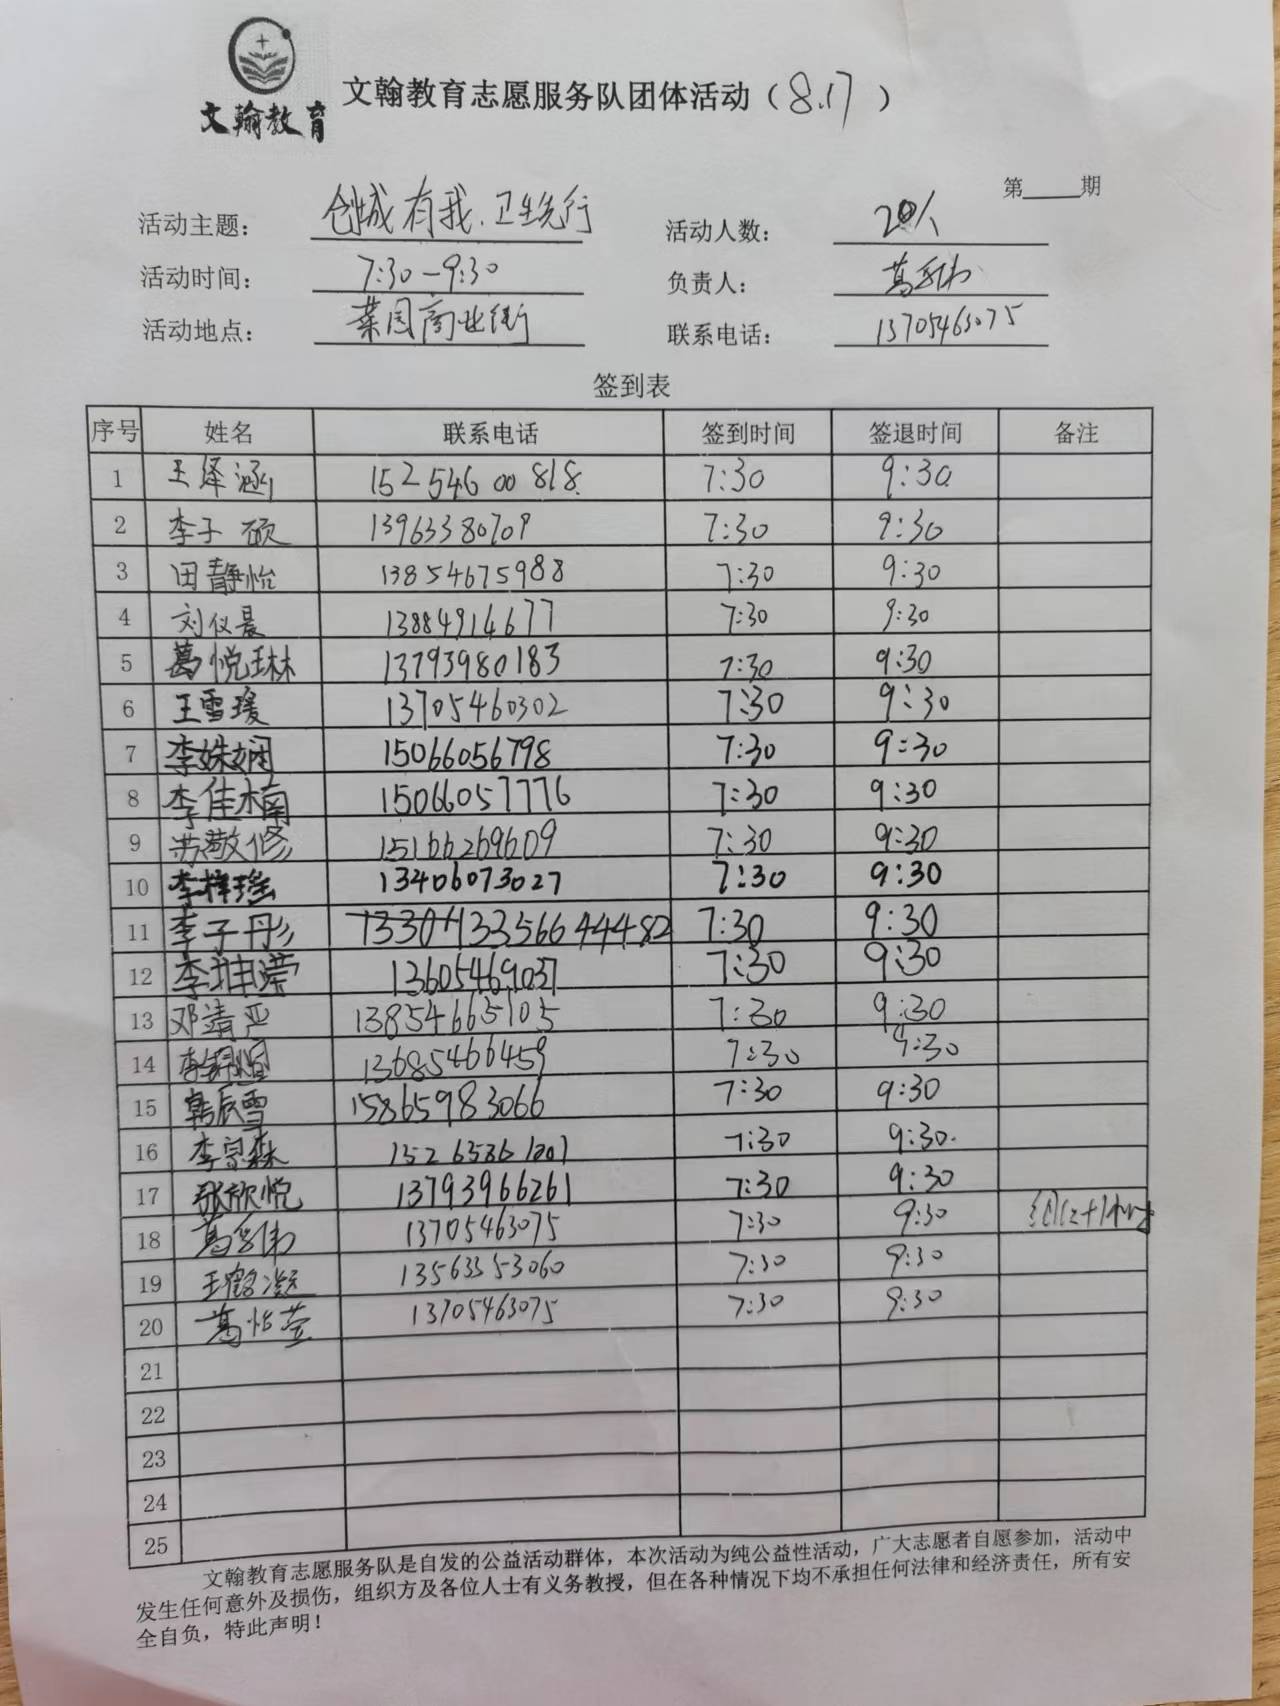 文翰教育
文翰教育志愿服务队团体活动（8.17）
第____期
活动主题： 创城有我.卫生先行 活动人数： 20人
活动时间： 7:30-9:30 负责人： 葛
活动地点： 菜园商业街 联系电话： 13705463075
签到表
序号 姓名 联系电话 签到时间 签退时间 备注
1 王绎涵 152 546 00 818 7:30 9:30
2 李子硕 13963380709 7:30 9:30
3 田静怡 13854675988 7:30 9:30
4 刘仪晨 13884914677 7:30 9:30
5 葛悦琳 13793980183 7:30 9:30
6 王雪瑗 13705460302 7:30 9:30
7 李姝娴 15066056798 7:30 9:30
8 李佳楠 15066057776 7:30 9:30
9 苏敬修 15166269609 7:30 9:30
10 李梓瑶 13406073027 7:30 9:30
11 李子彤 13356644482 7:30 9:30
12 李 13605469037 7:30 9:30
13 邓靖严 13854665105 7:30 9:30
14 李 13685466459 7:30 9:30
15 韩辰雪 15865983066 7:30 9:30
16 李宗森 7:30 9:30
17 张欣悦 13793966261 7:30 9:30
18 葛 13705463075 7:30 9:30
19 王鹤凝 13563353060 7:30 9:30
20 葛怡莹 13705463075 7:30 9:30
21
22
23
24
25
文翰教育志愿服务队是自发的公益活动群体，本次活动为纯公益性活动，广大志愿者自愿参加，活动中
发生任何意外及损伤，组织方及各位人士有义务教授，但在各种情况下均不承担任何法律和经济责任，所有安
全自负，特此声明！